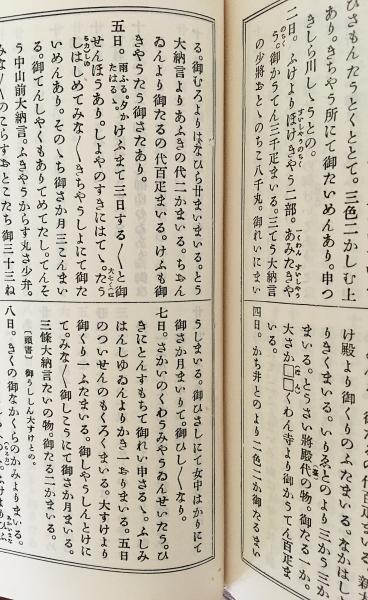 ひさもんたうとくととて。三色二かしむ上
あり。きちやう所にて御たいめんあり。申つ
きしら川しうとの。
二日。ふけよりほけきやう二部。あみたきや
う。御かうてん三千疋まいる。三てう大納言
の少將おとゝのちこ八千丸。御れいにまい
け殿より御くりのふたまいる。
りきくまいる。いりゑとのより三かう三か
まいる。とうさい將殿代の物。御たる一か。
大さか□□くわん寺より御かうてん百疋ま
いる。
四日。かち井とのより二色二か御たるまい
る。御むろよりはなひら廿まいまいる。とう
大納言よりあふきの代二かまいる。ちやん
ゐんより御たるの代百疋まいる。けふも御
きやうたう御さたあり。
五日。雨ふる。夕かたはるゝ。けふまて三日する〳〵と御
せんほうあり。しよやのすきにはてゝ。たう
しはしめてみな〳〵きちやうしよにて御た
いめんあり。そのゝち御さか月三こんまい
る。御てんしやくもありてめてたし。てんそ
う中山前大納言。ふきやうからす丸さ少弁。
みな〳〵のこらすおとこたち御三十三ね
うしまいる。御ひさしにて女中はかりにて
御さか月まいりて。御ひし〳〵なり。
七日。さかいのくわうみやうゐんせいたう。と
きにとんすもちて御れい申さるゝ。ふしみ
はんしゆゐんよりかき一おりまいる。五日
のついせんのもくろくまいる。大すけより
御くり一ふたまいる。御しやうしんとけに
て。みな〳〵御しこうにて御さか月まいる。
三條大納言たいの物。御たる二かまいる。
（頭書）御うししん大すけとの。
八日。きくの御なかくらのかみよりまいる。